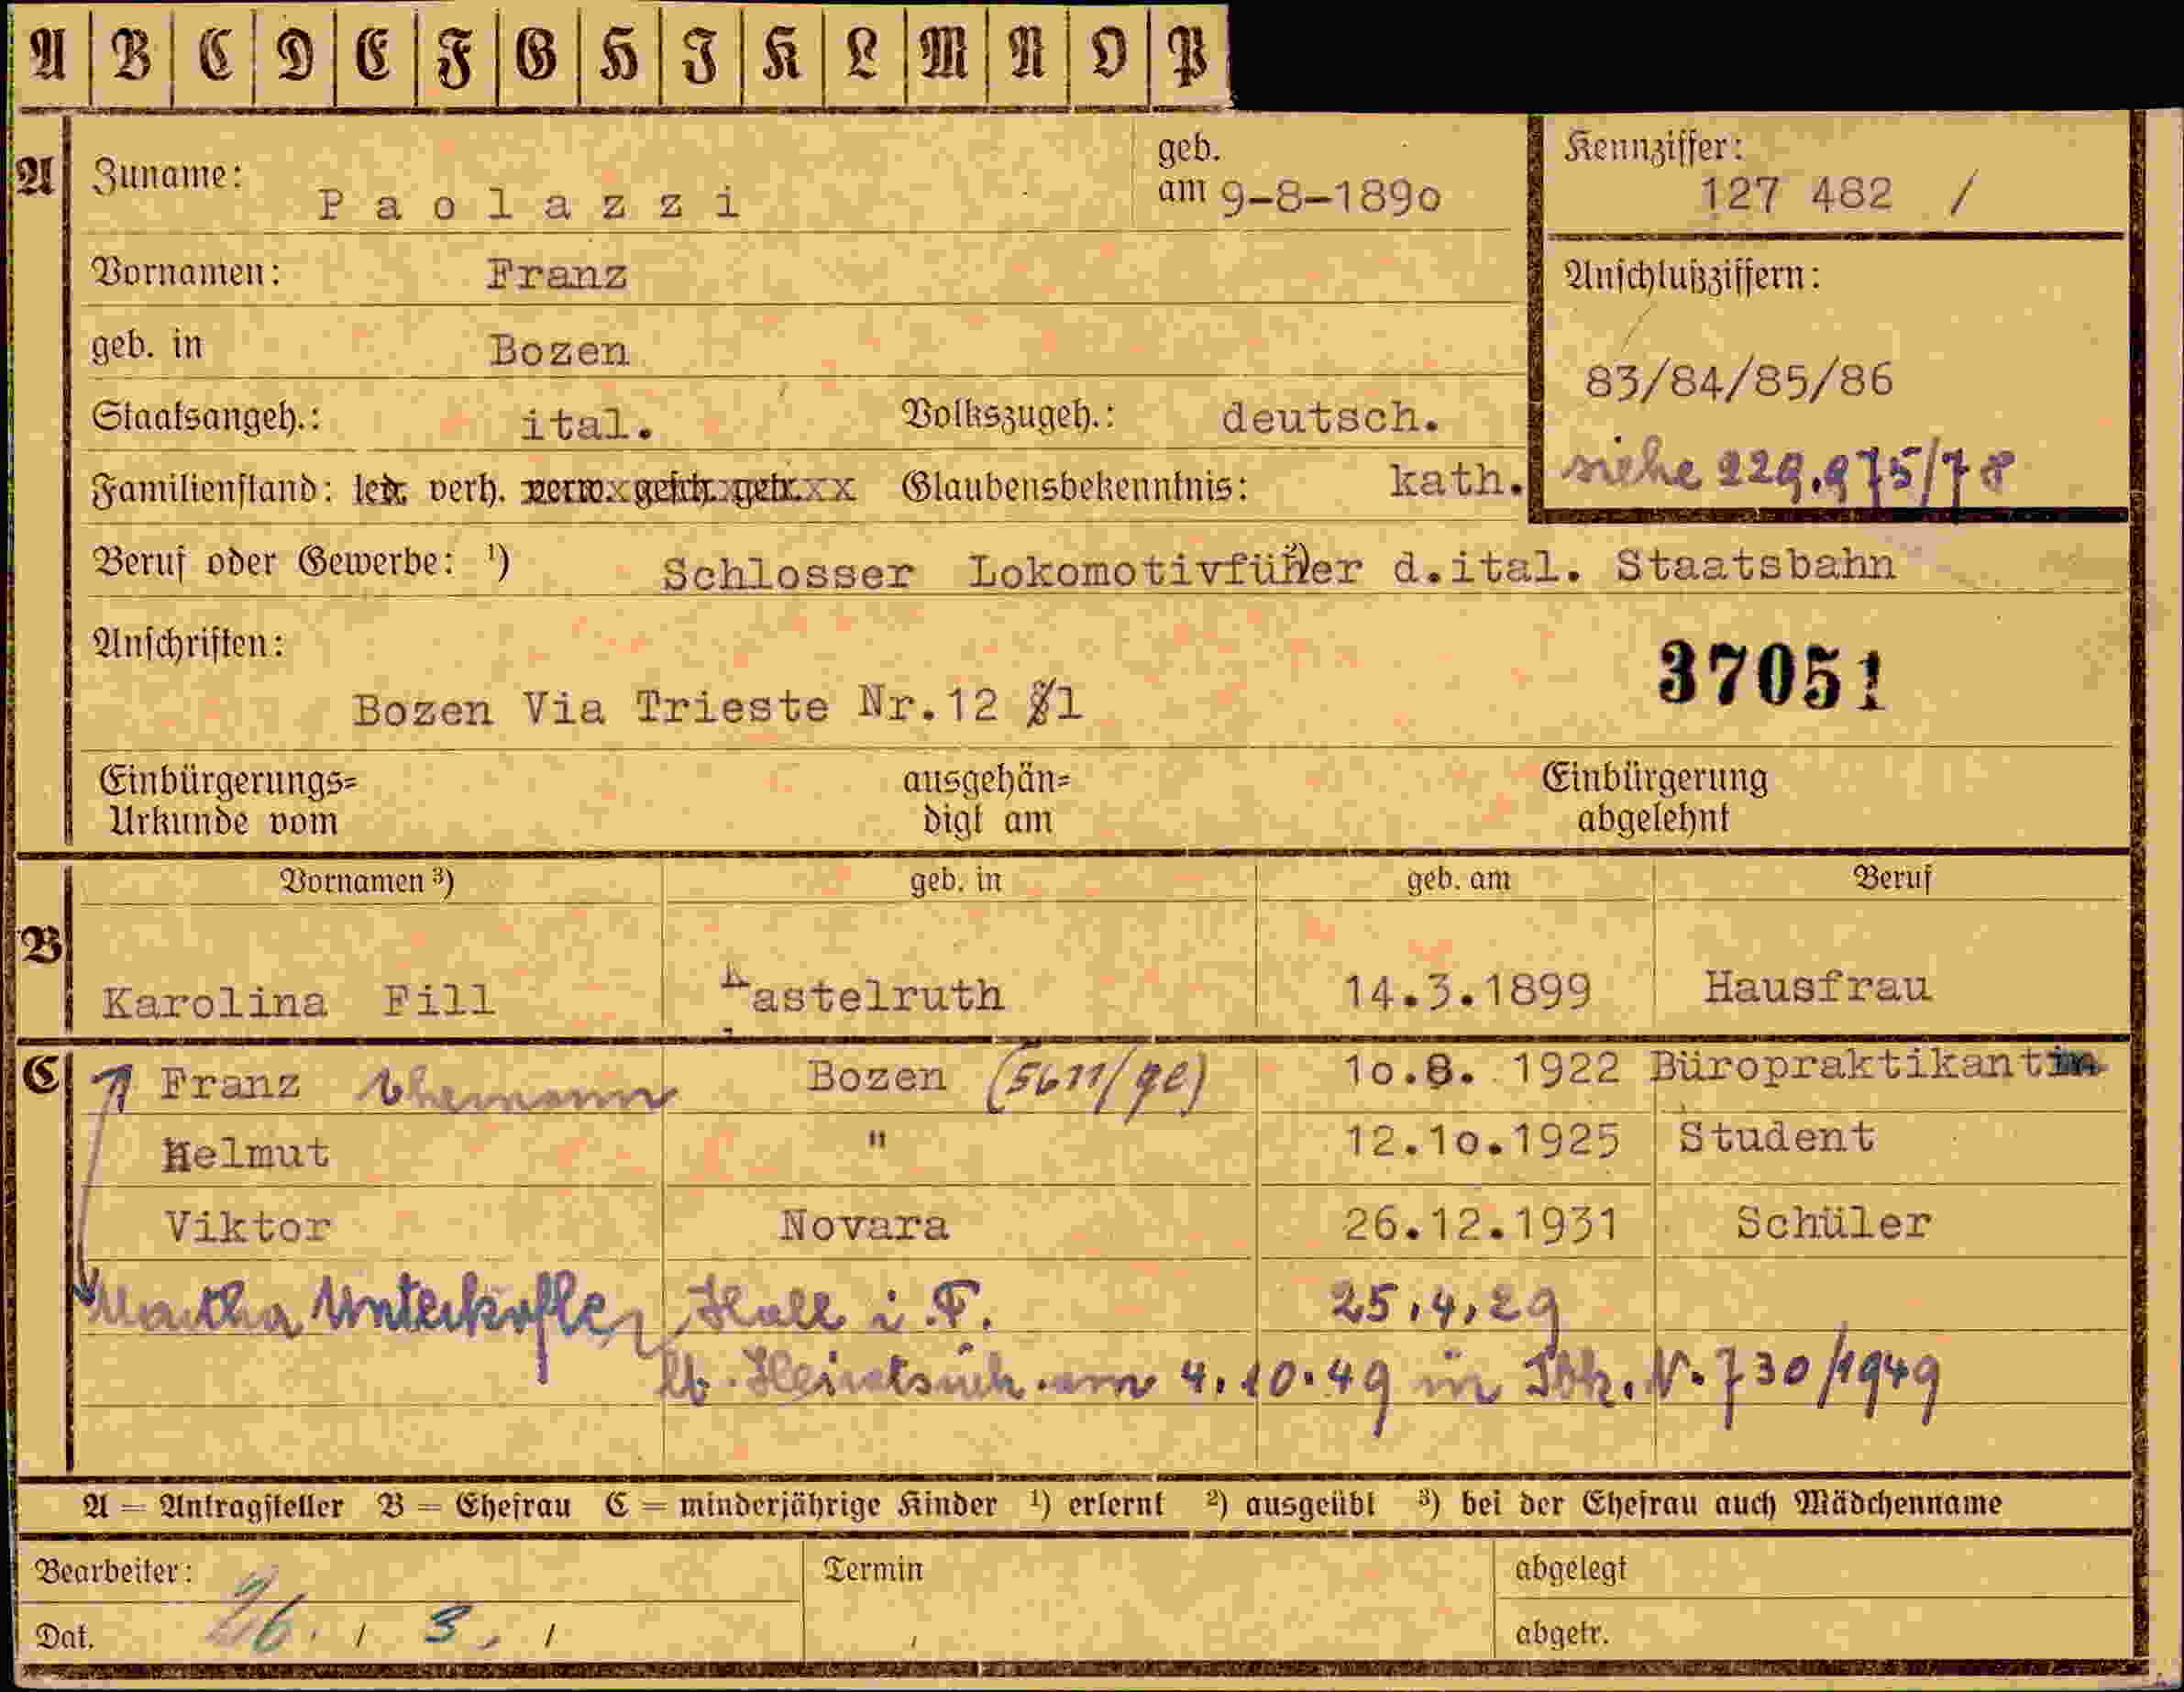 A B C D E F G H I K L M N O P
A Zuname: Paolazzi geb. am 9-8-1890
Kennziffer: 127 482 /
Vornamen: Franz
Anschlußziffern:
geb. in Bozen
83/84/85/86
Staatsangeh.: ital. Volkszugeh.: deutsch.
siehe 229.975/78
Familienstand: led. verh. verw. gesch. getr. xx Glaubensbekenntnis: kath.
Beruf oder Gewerbe: ¹) Schlosser Lokomotivfüher d.ital. Staatsbahn
Anschriften:
37051
Bozen Via Trieste Nr.12 1
Einbürgerungs= ausgehän= Einbürgerung
Urkunde vom digt am abgelehnt
Vornamen ³) geb. in geb. am Beruf
B
Karolina Fill Kastelruth 14.3.1899 Hausfrau
C Franz Ehemann Bozen 10.8. 1922 Büropraktikant
Helmut " 12.10.1925 Student
Viktor Novara 26.12.1931 Schüler
Martha Unterkofler Hall i. T. 25.4.29
lt. Heiratsurk. am 4.10.49 in Ibk. N. 730/1949
A = Antragsteller B = Ehefrau C = minderjährige Kinder ¹) erlernt ²) ausgeübt ³) bei der Ehefrau auch Mädchenname
Bearbeiter: Termin abgelegt
Dat. 26. / 3. / abgetr.